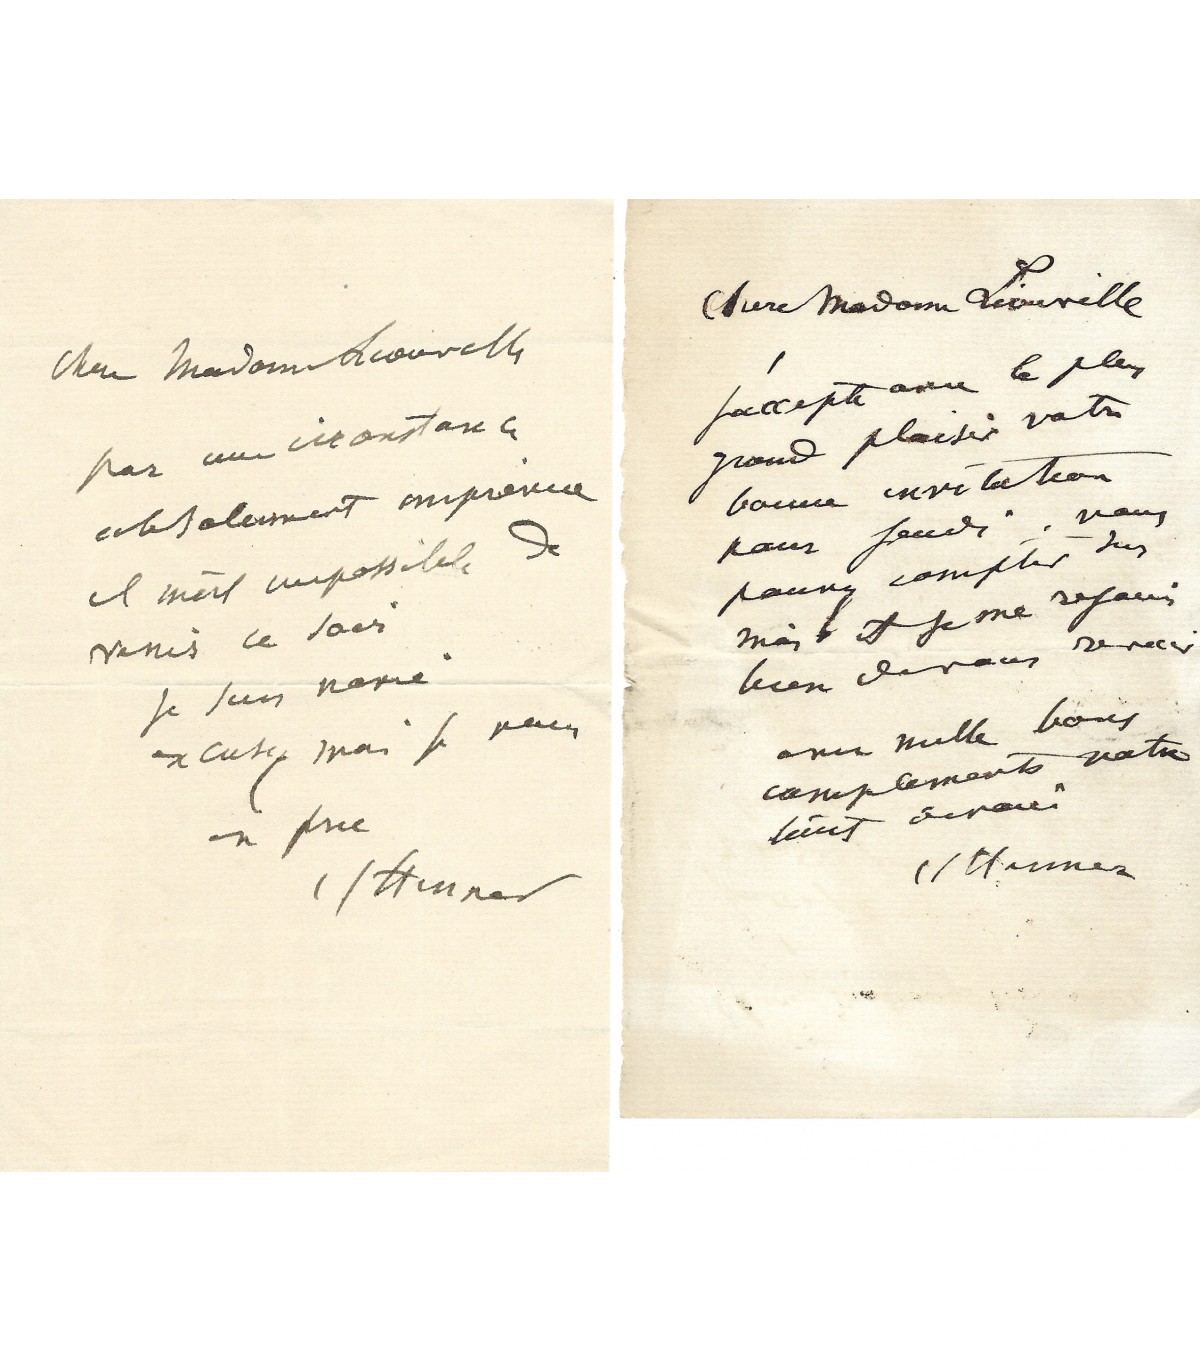 Chere Madame Liouville
par une circonstance
absolument imprévue
il m'est impossible de
venir ce soir
je suis navré
excusez moi je vous
en prie
JJ Henner
Chere Madame Liouville
J'accepte avec le plus
grand plaisir votre
bonne invitation
pour jeudi, vous
pouvez compter sur
moi et je me rejouis
bien de vous revoir
avec mille bons
compliments votre
tout devoué
JJ Henner